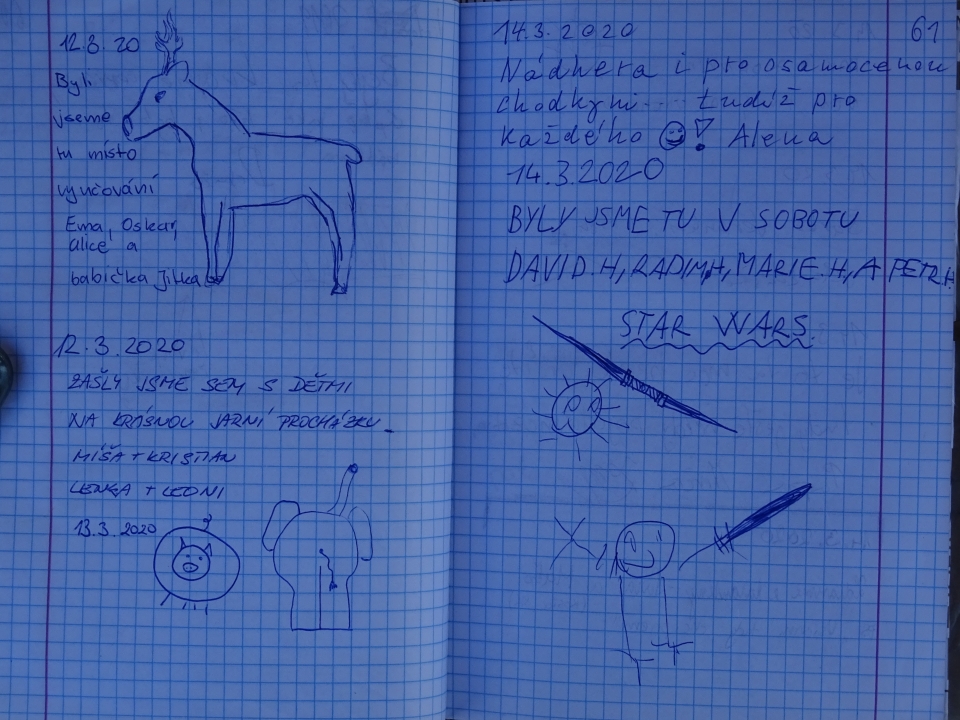 12.3.20
Byli
jseme
tu místo
vyučování
Ema, Oskar,
alice a
babička Jitka
12.3.2020
ZAŠLY JSME SEM S DĚTMI
NA KRÁSNOU JARNÍ PROCHÁZKU
MÍŠA + KRISTIAN
LENKA + LEONI
13.3.2020
14.3.2020
61
Nádhera i pro osamocenou
chodkyni.... tudíž pro
každého ☺! Alena
14.3.2020
BYLY JSME TU V SOBOTU
DAVID.H, RADIM.H, MARIE.H, A PETR.H
STAR WARS